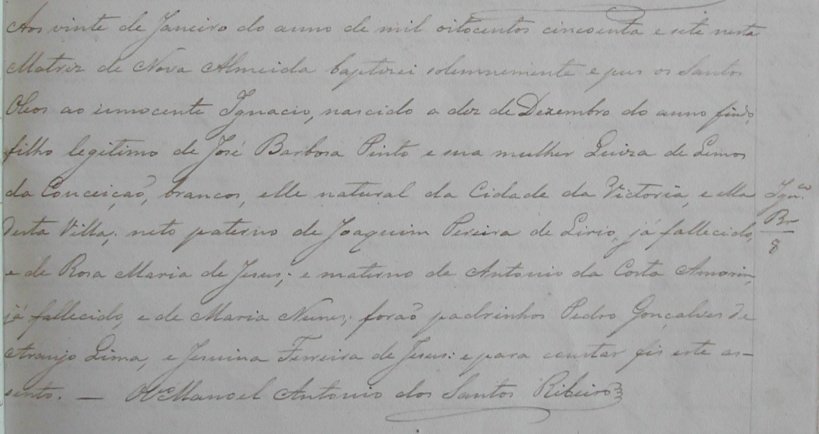 Aos vinte de Janeiro do anno de mil oitocentos cincoenta e sete nesta
Matriz de Nova Almeida baptizei solemnemente e pus os Santos
Oleos ao innocente Ignacio, nascido a dez de Dezembro do anno findo,
filho legitimo de José Barbosa Pinto e sua mulher Luiza de Lemos
da Conceiçaõ, brancos, elle natural da Cidade da Victoria, e ella
desta Villa; neto paterno de Joaquim Pereira de Lirio, já fallecido,
e de Rosa Maria de Jesus; e materno de Antonio da Costa Amorim,
já fallecido, e de Maria Nunes; foraõ padrinhos Pedro Gonçalves de
Araujo Lima, e Jesuina Ferreira de Jesus: e para constar fis este as-
sento. — O Vº Manoel Antonio dos Santos Ribeiro
Ignº
Br
8